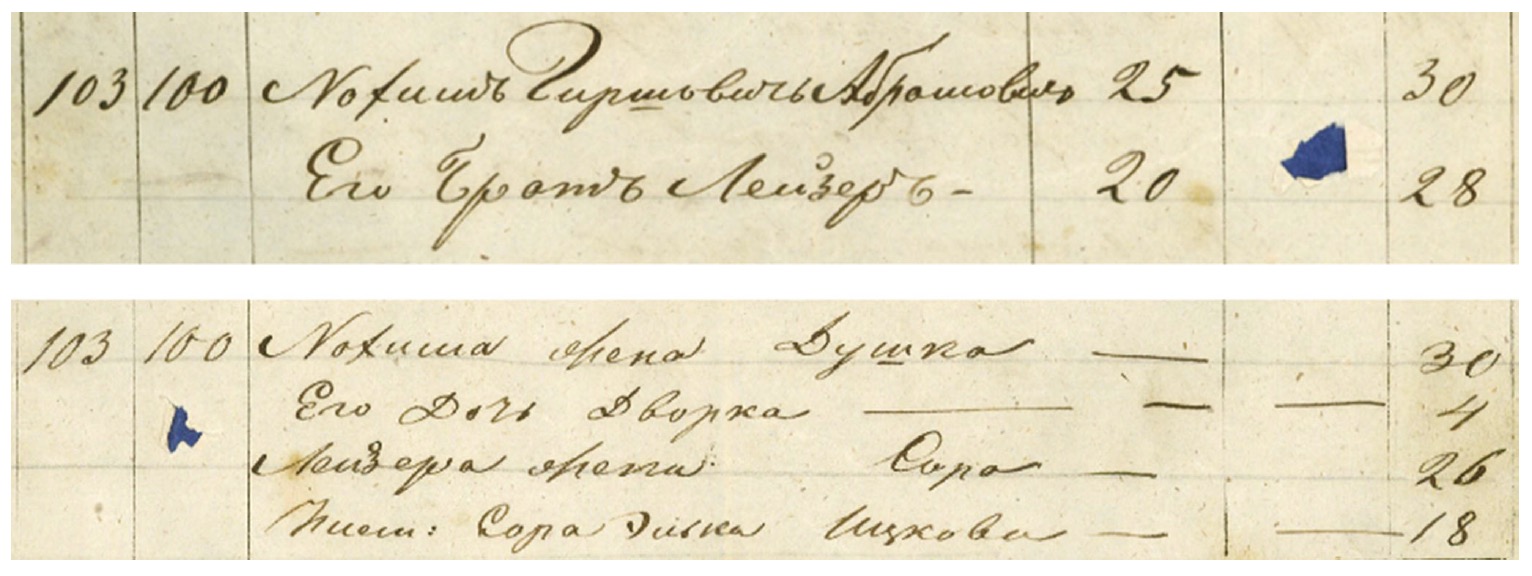 103 100 Нохимъ Гиршовичь Абрамовичь 25 30
Его Братъ Лейзеръ - 20 28
103 100 Нохима жена Душка — 30
Его Дочь Дворка — — — 4
Лейзера жена Сора — 26
Сора Элька Ицкова — — 18